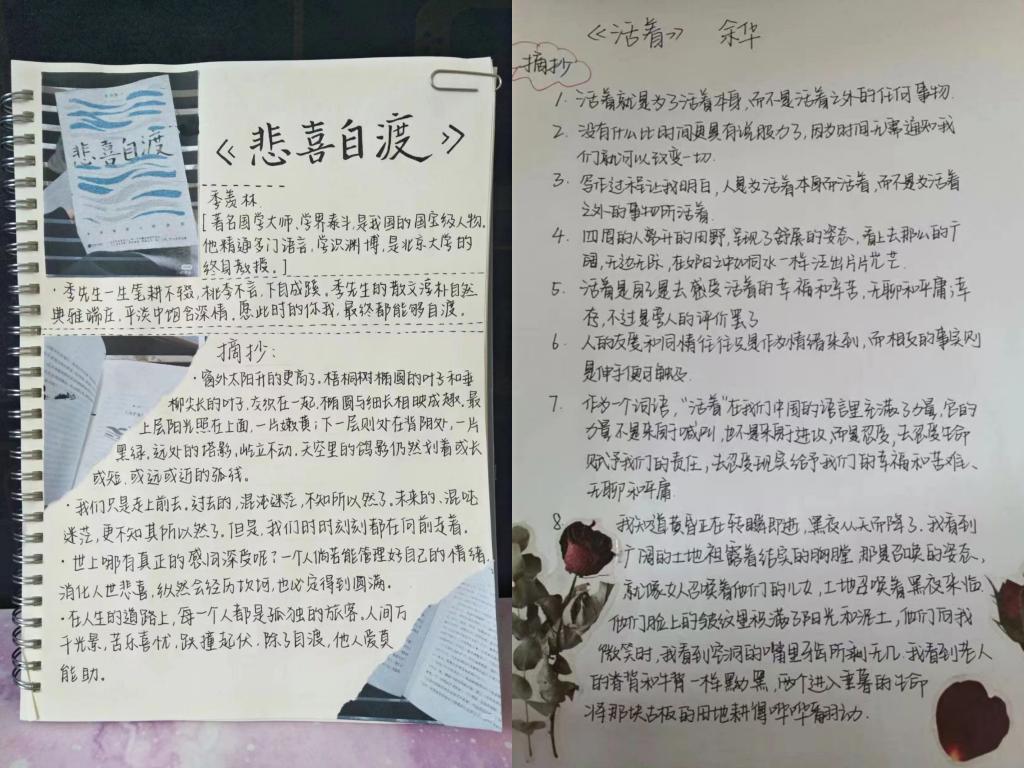 悲喜自渡
《悲喜自渡》
季羡林
[著名国学大师、学界泰斗,是我国的国宝级人物。
他精通多门语言,学识渊博,是北京大学的
终身教授。]
·季先生一生笔耕不辍,桃李不言,下自成蹊。季先生的散文淳朴自然
典雅端庄,平淡中饱含深情。愿此时的你我,最终都能够自渡。
摘抄:
·窗外太阳升的更高了。梧桐树椭圆的叶子和垂
柳尖长的叶子,交织在一起,椭圆与细长相映成趣。最
上层阳光照在上面,一片嫩黄;下一层则处在背阴处,一片
黑绿。远处的塔影,屹立不动。天空里的鸽影仍然划着或长
或短,或远或近的弧线。
·我们只是走上前去。过去的,混沌迷茫,不知所以然了。未来的,混沌
迷茫,更不知其所以然了。但是,我们时时刻刻都在向前走着。
·世上哪有真正的感同深度呢?一个人倘若能管理好自己的情绪,
消化人世悲喜,纵然会经历坎坷,也必定得到圆满。
·在人生的道路上,每一个人都是孤独的旅客。人间万
千光景,苦乐喜忧,跌撞起伏,除了自渡,他人爱莫
能助。
《活着》 余华
摘抄
1. 活着就是为了活着本身,而不是活着之外的任何事物.
2. 没有什么比时间更具有说服力了,因为时间无需通知我
们就可以改变一切.
3. 写作过程让我明白,人是为活着本身而活着,而不是为活着
之外的事物所活着.
4. 四周的人离开的田野,呈现了舒展的姿态,看上去那么的广
阔,无边无际,在夕阳之中如同水一样泛出片片光芒.
5. 活着是自己去感受活着的幸福和辛苦,无聊和平庸;幸
存,不过是旁人的评价罢了
6. 人的友爱和同情往往只是作为情绪来到,而相反的事实则
是伸手便可触及.
7. 作为一个词语,“活着”在我们中国的语言里充满了力量,它的
力量不是来自于喊叫,也不是来自于进攻,而是忍受,去忍受生命
赋予我们的责任,去忍受现实给予我们的幸福和苦难、
无聊和平庸.
8. 我知道黄昏正在转瞬即逝,黑夜从天而降了.我看到
广阔的土地袒露着结实的胸膛,那是召唤的姿态,
就像女人召唤着他们的儿女,土地召唤着黑夜来临.
他们脸上的皱纹里积满了阳光和泥土,他们向我
微笑时,我看到空洞的嘴里牙齿所剩无几.我看到老人
的脊背和牛背一样黝黑,两个进入垂暮的生命
将那块古板的田地耕得哗哗翻动.